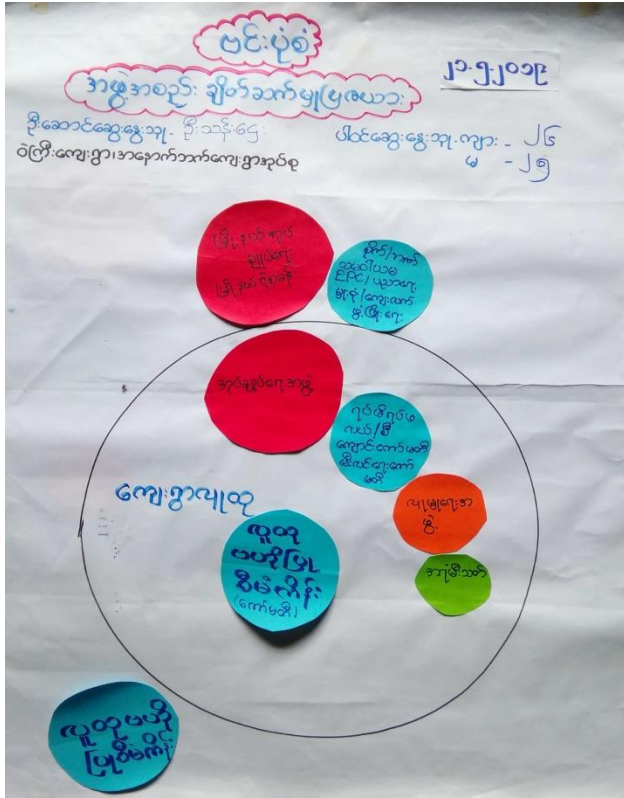 ဗင်းပုံစံ
အဖွဲ့အစည်း ချိတ်ဆက်မှုပြဇယား
၂၁.၅.၂၀၁၉
ဦးဆောင်ဆွေးနွေးသူ - ဦးသန်းဌေး
ပါဝင်ဆွေးနွေးသူ - ကျား - ၂၆
မ - ၂၅
ဝဲကြီးကျေးရွာ၊ အနောက်ဘက်ကျေးရွာအုပ်စု
မြို့နယ်အုပ်
ချုပ်ရေး
မြို့နယ်ရဲစခန်း
စိုက်/ကဏ်
သမဝါယမ
EPC/ပညာရေး
အုပ်ချုပ်ရေးအဖွဲ့
ရပ်မိရပ်ဖ
လယ်/မီ
ကျောင်းကော်မတီ
မီးလင်းရေးကော်
မတီ
ကျေးရွာလူထု
လူမှုရေးအ
ဖွဲ့
အရံမီးသတ်
လူထု
ဗဟိုပြု
စီမံကိန်း
(ကော်မတီ)
လူထုဗဟို
ပြုစီမံကိန်း